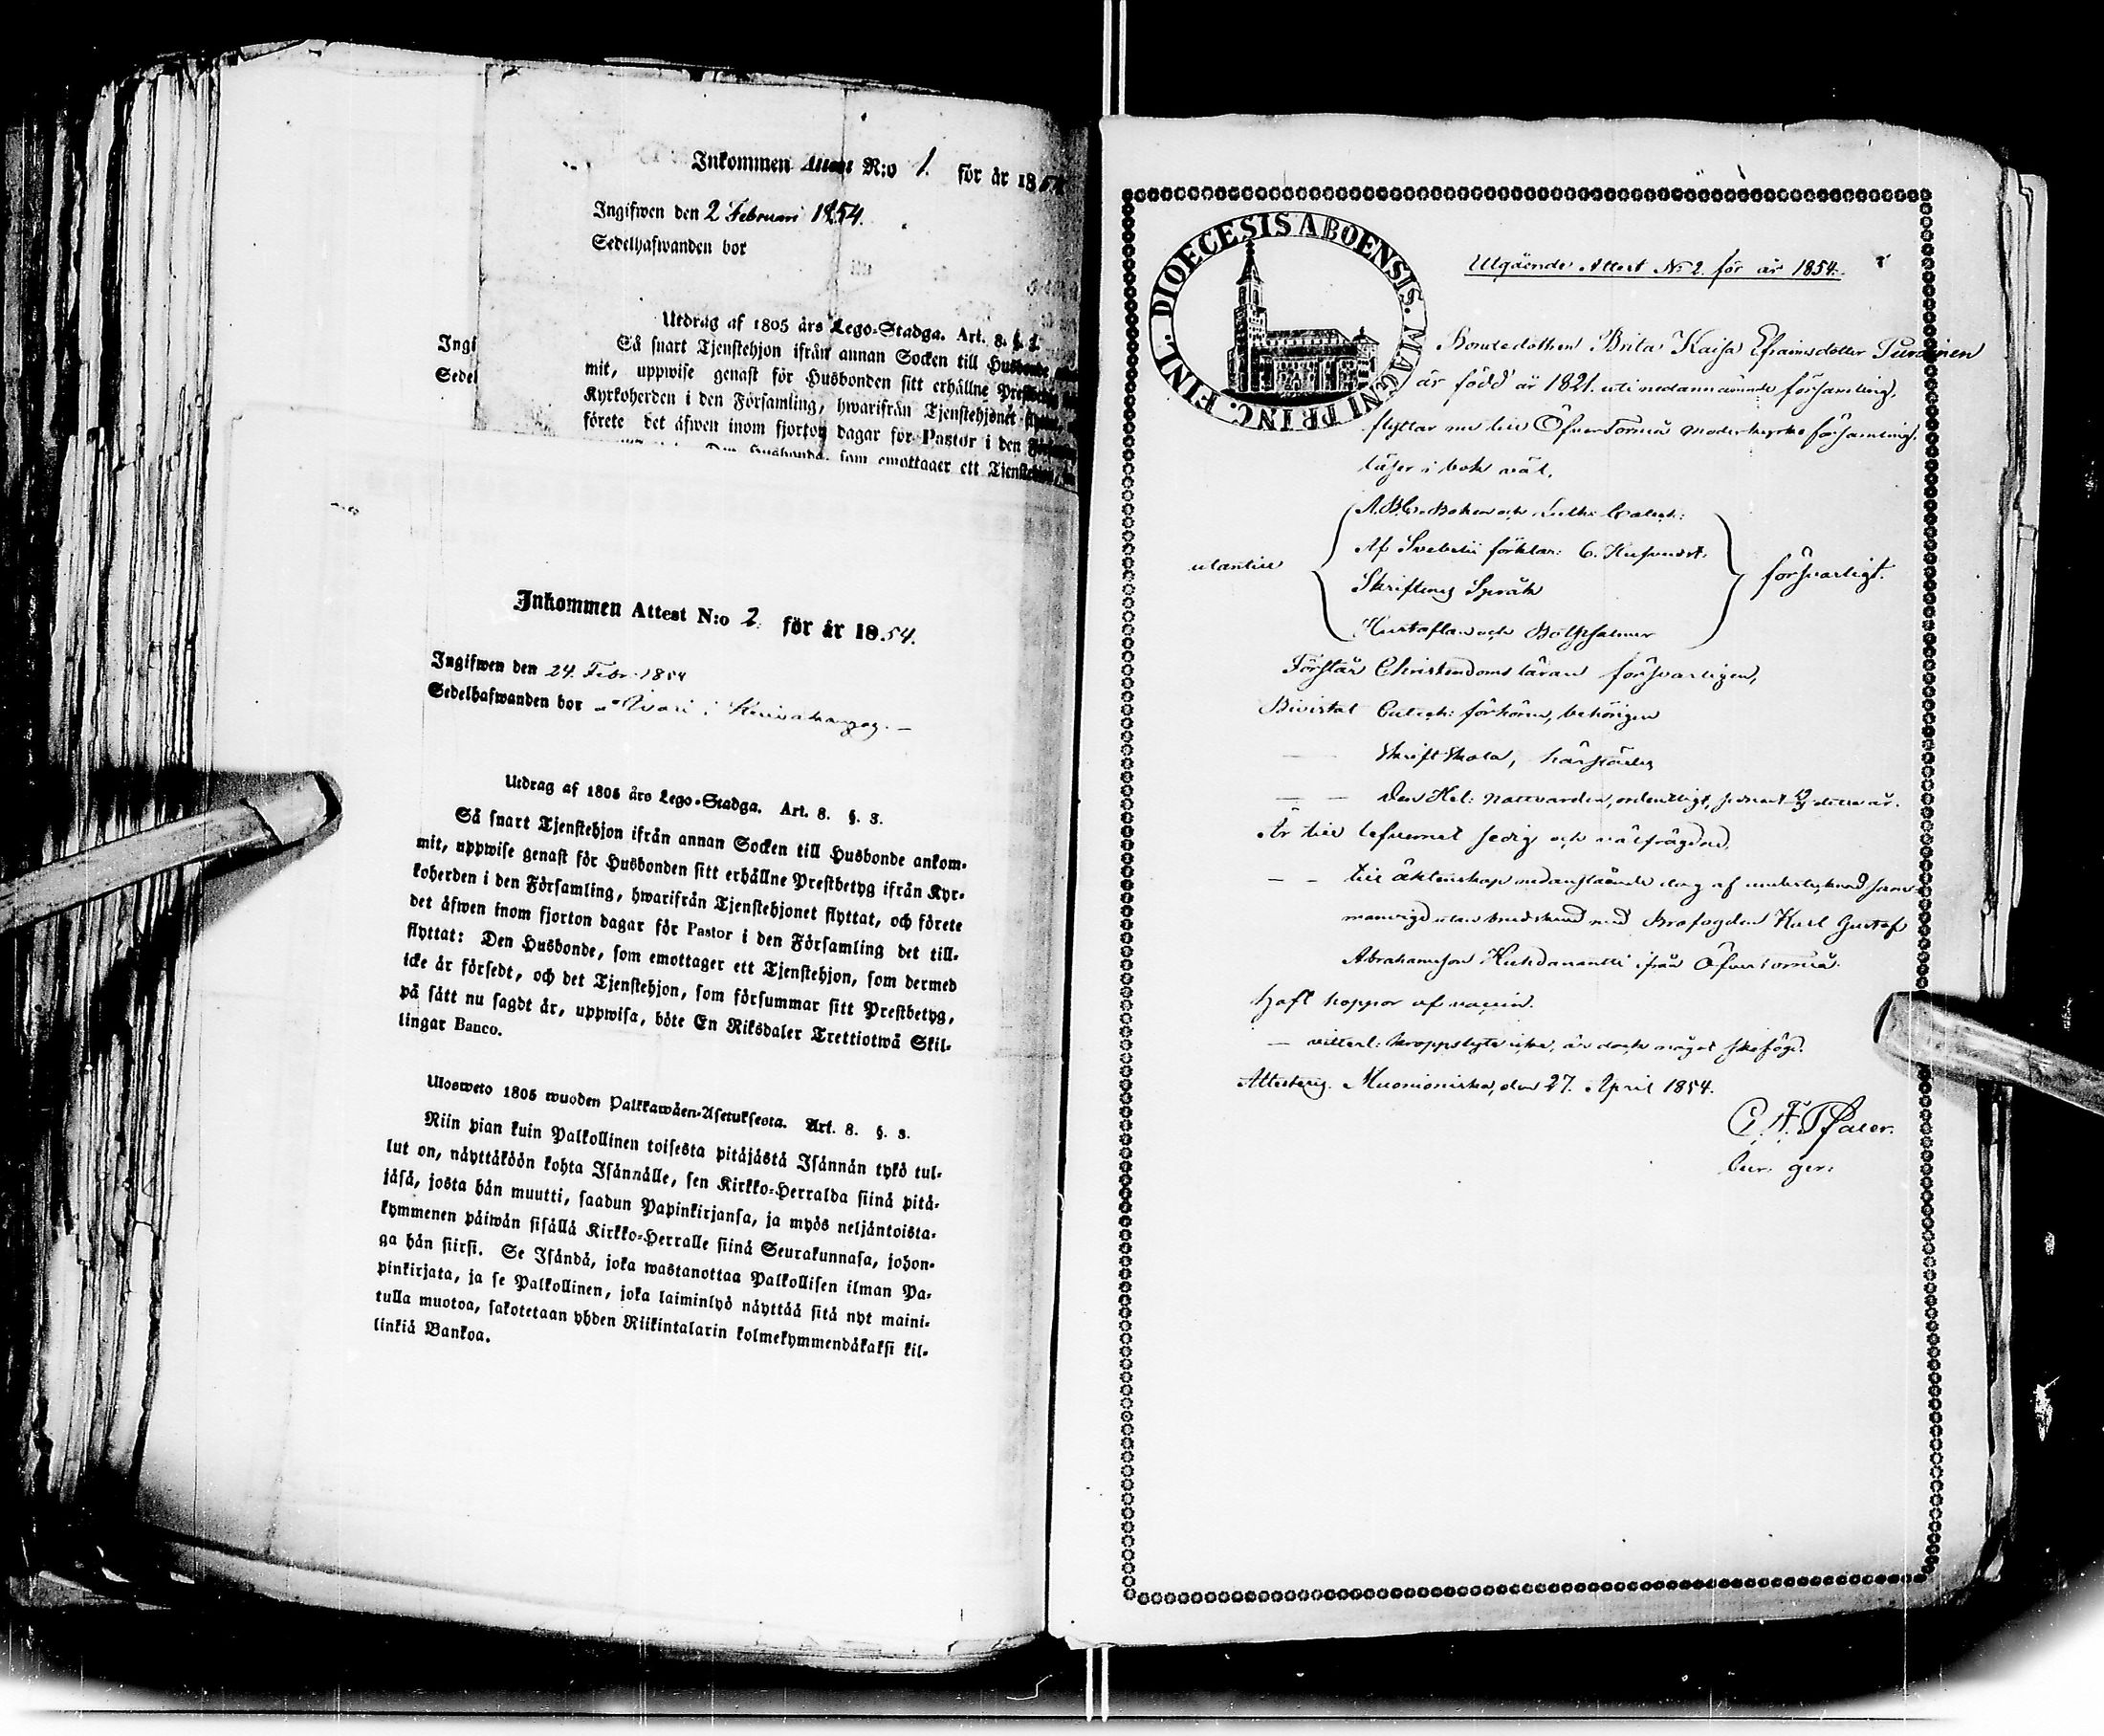 Inkommen Attest N:o 1. för år 1854
Ingifwen den 2 Februari 1854.
Sedelhafwanden bor
Utdrag af 1805 års Lego-Stadga. Art. 8. §. 3.
Så snart Tjenstehjon ifrån annan Socken till Husbonde
mit, uppwise genast för Husbonden sitt erhållne
Kyrkoherden i den Församling, hwarifrån Tjenstehjonet
förete det äfwen inom fjorton dagar för Pastor i den
Den Husbonde, som emottager ett
Ingi
Sedel
Inkommen Attest N:o 2. för år 1854.
Ingifwen den 24. Febr. 1854
Sedelhafwanden bor
Utdrag af 1805 års Lego-Stadga. Art. 8. §. 3.
Så snart Tjenstehjon ifrån annan Socken till Husbonde ankom-
mit, uppwise genast för Husbonden sitt erhållne Prestbetyg ifrån Kyr-
koherden i den Församling, hwarifrån Tjenstehjonet flyttat, och förete
det äfwen inom fjorton dagar för Pastor i den Församling det till-
flyttat: Den Husbonde, som emottager ett Tjenstehjon, som dermed
icke är försedt, och det Tjenstehjon, som försummar sitt Prestbetyg,
på sätt nu sagdt är, uppwisa, böte En Riksdaler Trettiotwå Skil-
lingar Banco.
Ulosweto 1805 wuoden Palkkawäen-Asetuksesta. Art. 8. §. 3.
Niin pian kuin Palkollinen toisesta pitäjästä Isännän tykö tul-
lut on, näyttäköön kohta Isännälle, sen Kirkko-Herralda siinä pitä-
jäsä, josta hän muutti, saadun Papinkirjansa, ja myös neljäntoista-
kymmenen päiwän sisällä Kirkko-Herralle siinä Seurakunnasa, johon-
ga hän siirsi. Se Isändä, joka wastanottaa Palkollisen ilman Pa-
pinkirjata, ja se Palkollinen, joka laiminlyö näyttää sitä nyt maini-
tulla muotoa, sakotetaan yhden Riikintalarin kolmekymmendäkaksi kil-
linkiä Bankoa.
DIOECESIS ABOENSIS. MAGNI PRINC. FINL.
Utgående Attest No 2. för år 1854.
Bondedottren Brita Kaisa Efraimsdotter
är född år 1821. uti nedannämnde församling,
flyttar nu till Öfver Torneå moderkyrko församling.
läser i bok väl,
utantill
A.B.C. Boken och Luth: Catech:
Af Svebelii förklar: 6. Hufvudst:
Skriftenes Språk
Hustaflan och Botpsalmer
försvarligt.
Förstår Christendoms läran försvarligen,
Bivistat Catech: förhören, behörigen
— skriftskola, härstädes
— — den Hel: Nattvarden, ordentligt, senast detta år.
Är till lefvernet sedig och välfrägdad,
— — till äktenskap nedanstående dag af undertecknad sam-
manvigd utan brudskrud med Brofogden Karl Gustaf
Abrahamsson ifrån Öfver Torneå.
Haft koppor af vaccin.
— vitterl: kroppslyte icke, är dock något
Attesterar. Muonioniska, den 27. April 1854.